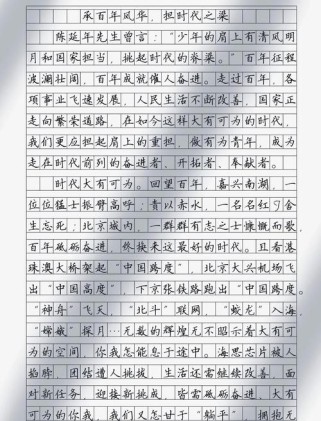 承百年风华，担时代之梁
陈延年先生曾言：“少年的肩上有清风明
月和国家担当，挑起时代的脊梁。”百年征程
波澜壮阔，百年成就催人奋进。走过百年，各
项事业飞速发展，人民生活不断改善，国家正
走向繁荣道路，在如今这样大有可为的时代，
我们更应担起肩上的重担，做有为青年，成为
走在时代前列的奋进者、开拓者、奉献者。
时代大有可为。回望百年，嘉兴南湖，一
位位猛士振臂高呼；青以赤水，一名名红夕舍
生忘死；北京城内，一群群有志之士慷慨而歌，
百年砥砺奋进，终换来这最好的时代。且看港
珠澳大桥架起“中国跨度”，北京大兴机场飞
出“中国高度”，下京张铁路跑出“中国跨度。
“神舟”飞天，“北斗”联网，“蛟龙”入海，
“嫦娥”探月…无数的辉煌无不昭示着大有可
为的空间，你我怎能息于途中。海思芯片被人
掐脖，团结遭人挑拨，生活还需继续改善，面
对新任务，迎接新挑战，皆需砥砺奋进，大有
可为的你我，我们又怎甘于“躺平”，拥抱无